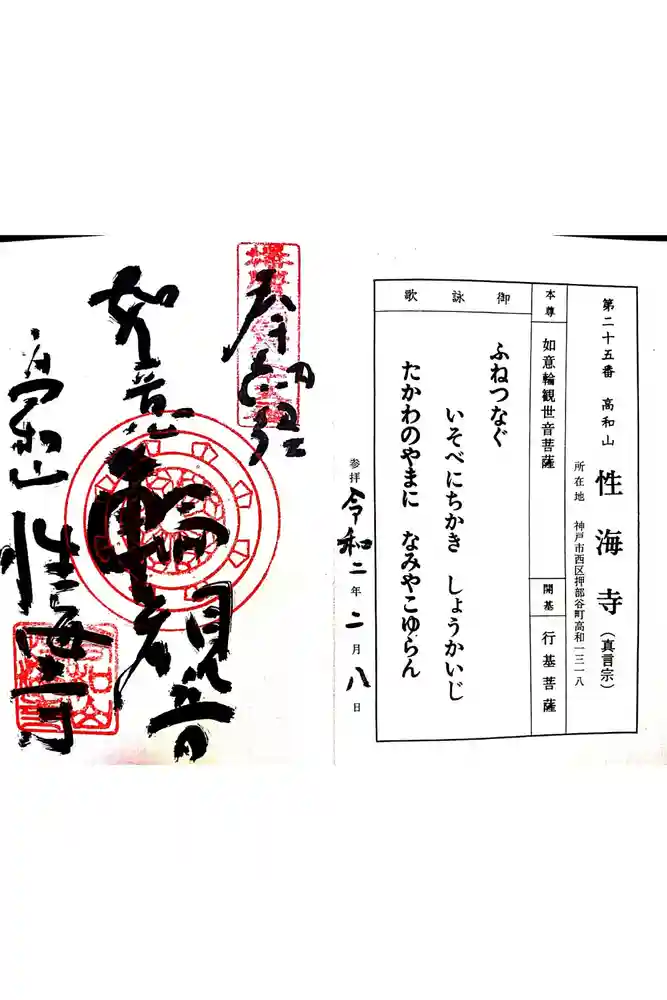 第二十五番 高和山 性海寺 (真言宗)
所在地 神戸市西区押部谷町高和一三一八
本尊 如意輪観世音菩薩
開基 行基菩薩
御詠歌
ふねつなぐ
いそべにちかき しょうかいじ
たかわのやまに なみやこゆらん
参拝 令和二年二月八日
奉納経
如意輪観音
高和山 性海寺